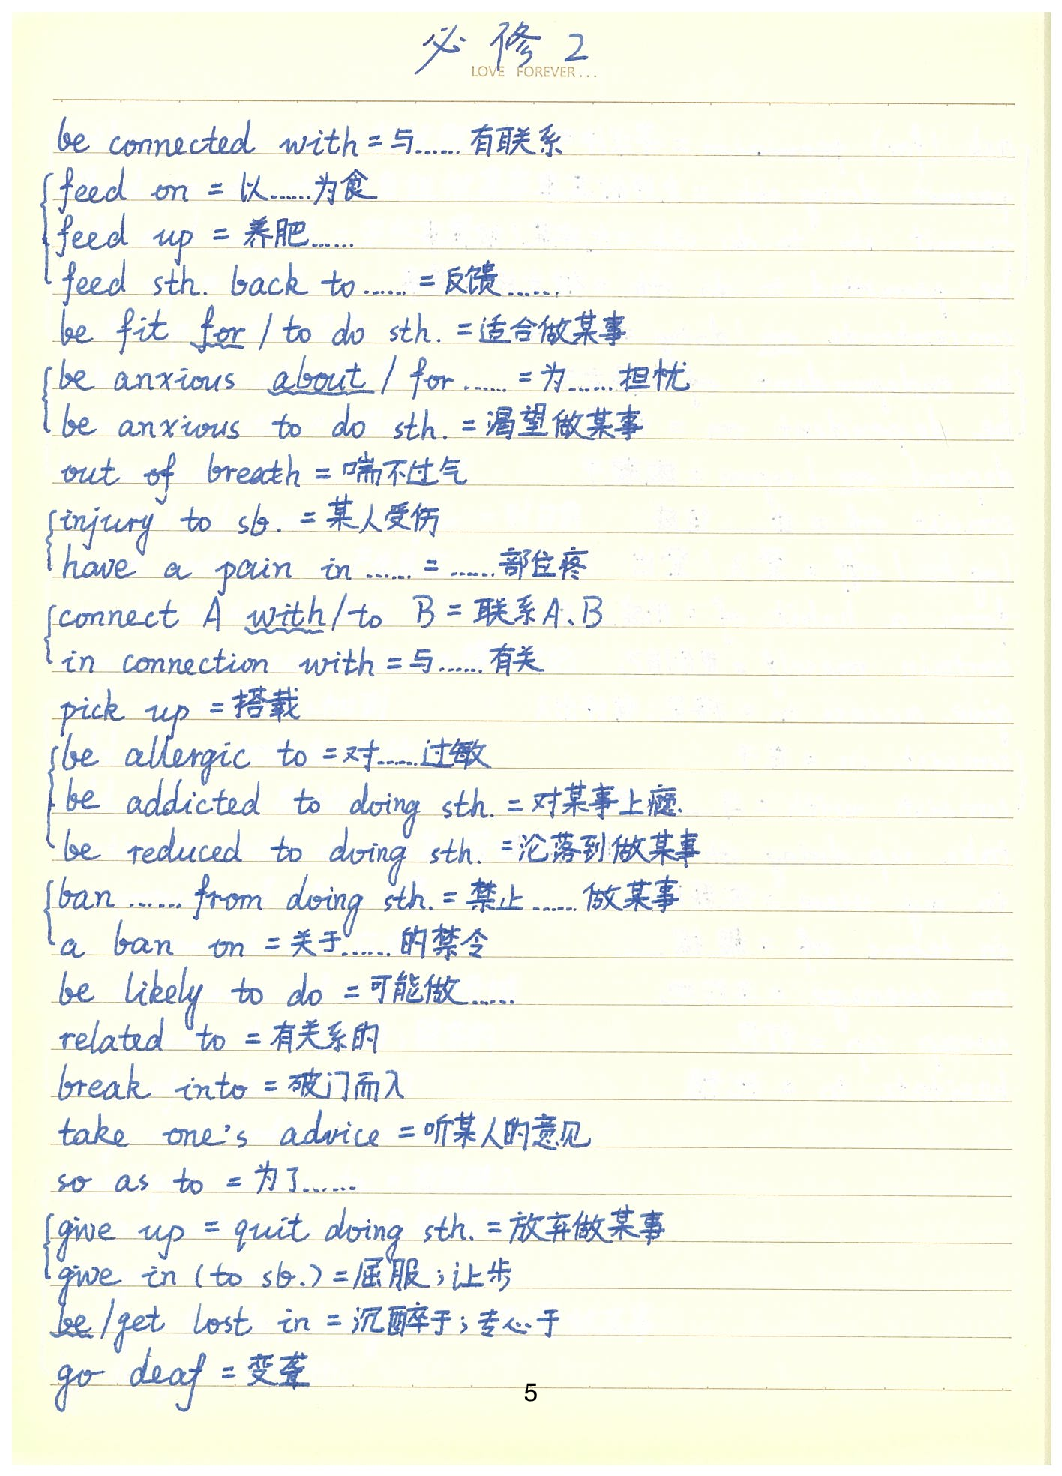 必修2
LOVE FOREVER...
be connected with = 与……有联系
feed on = 以……为食
feed up = 养肥……
feed sth. back to …… = 反馈……
be fit for / to do sth. = 适合做某事
be anxious about / for …… = 为……担忧
be anxious to do sth. = 渴望做某事
out of breath = 喘不过气
injury to sb. = 某人受伤
have a pain in …… = ……部位疼
connect A with/to B = 联系A、B
in connection with = 与……有关
pick up = 搭载
be allergic to = 对……过敏
be addicted to doing sth. = 对某事上瘾.
be reduced to doing sth. = 沦落到做某事
ban …… from doing sth. = 禁止……做某事
a ban on = 关于……的禁令
be likely to do = 可能做……
related to = 有关系的
break into = 破门而入
take one's advice = 听某人的意见
so as to = 为了……
give up = quit doing sth. = 放弃做某事
give in (to sb.) = 屈服；让步
be/get lost in = 沉醉于；专心于
go deaf = 变聋
5